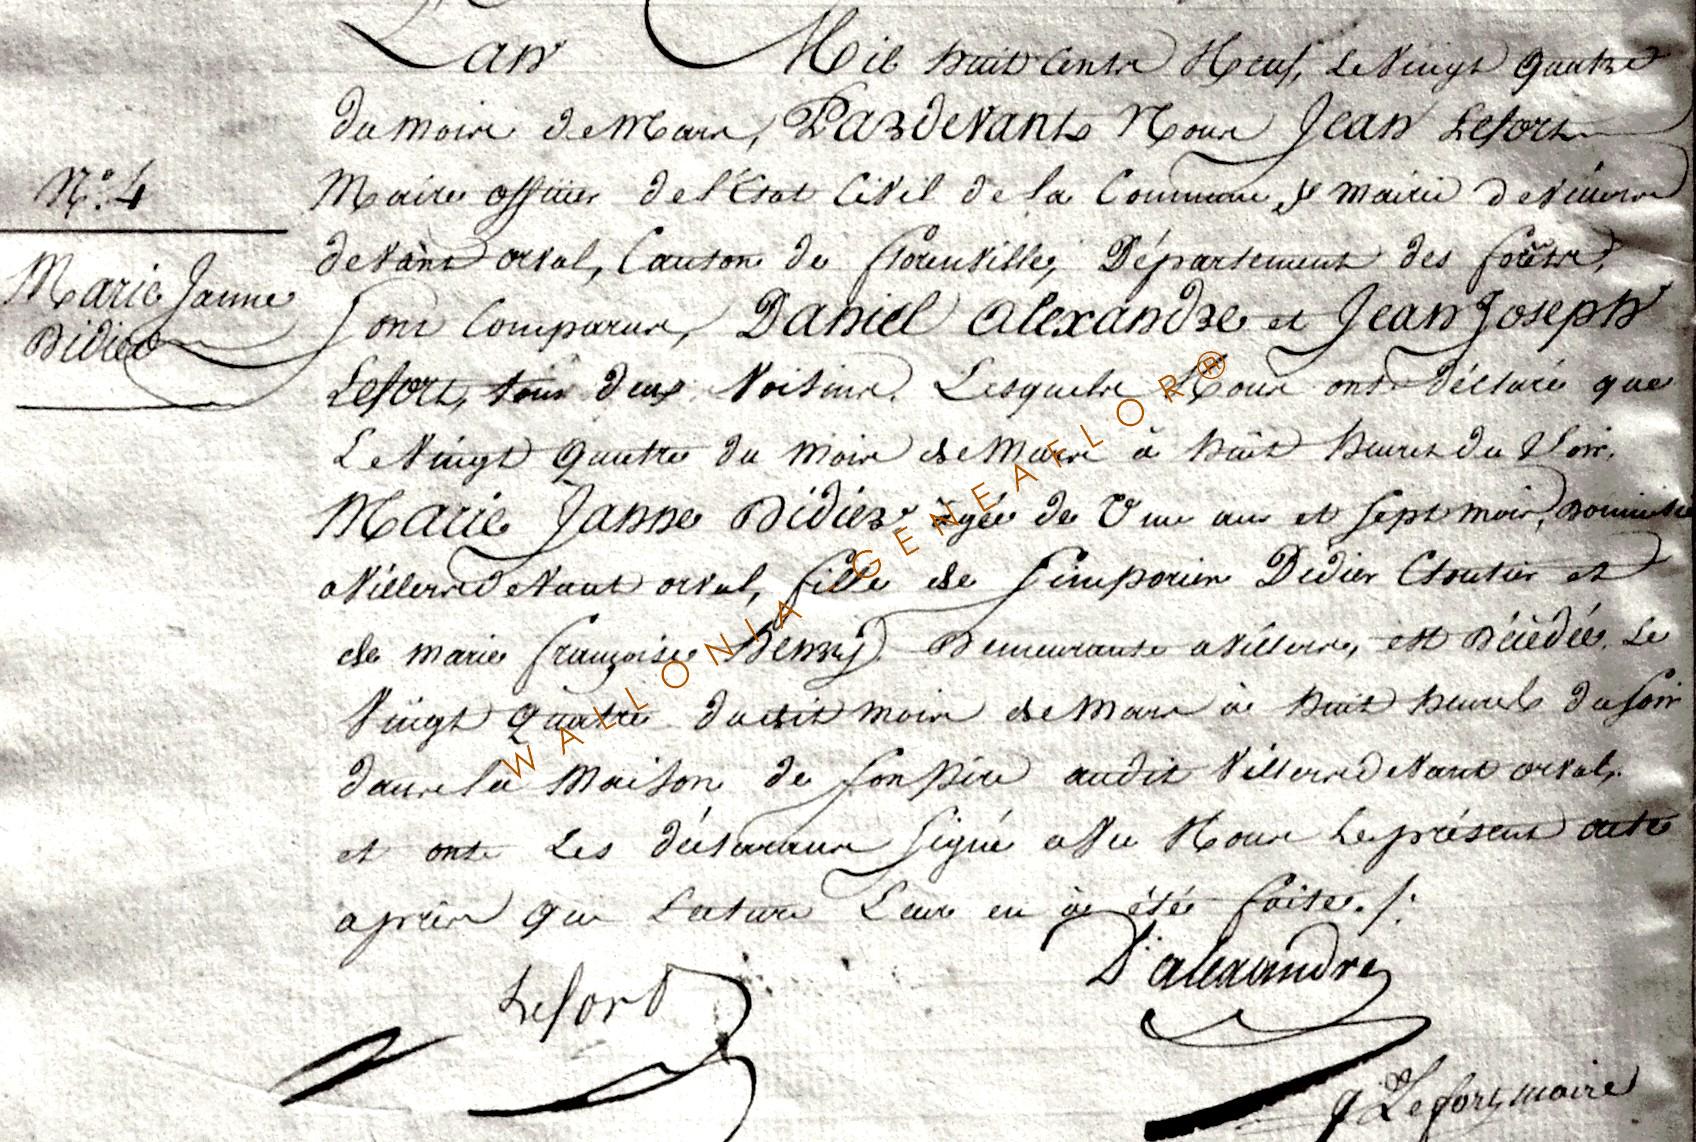 L'an Mil huit Cents Neuf, Le Vingt quatre
du mois de Mars, Pardevant Nous Jean Lefort
N°. 4
Maire officier de l'Etat Civil de la Commune & mairie de Villers
devant orval, Canton de florenville, Département des forêts,
Marie Janne
Didier
Sont Comparus, Daniel Alexandre et Jean Joseph
Lefort, tous deux Voisins. Lesquels Nous ont déclaré que
Le Vingt quatre du mois de Mars à huit heures du Soir,
Marie Janne Didier agée de Une an et Sept mois, Domiciliée
a Villers devant orval, fille de Simporien Didier Cloutier et
de marie françoise Henry Demeurante a Villers, est décédée. Le
Vingt quatre dudit mois de Mars à huit heures du soir
dans la Maison de son Père audit Villers devant orval,
et ont Les déclarans Signé avec Nous Le présent acte
après que Lecture Leur en à été faite./:
D. alexandre
Lefort
J. Lefort, maire
WALLONIA GENEAFLOR®